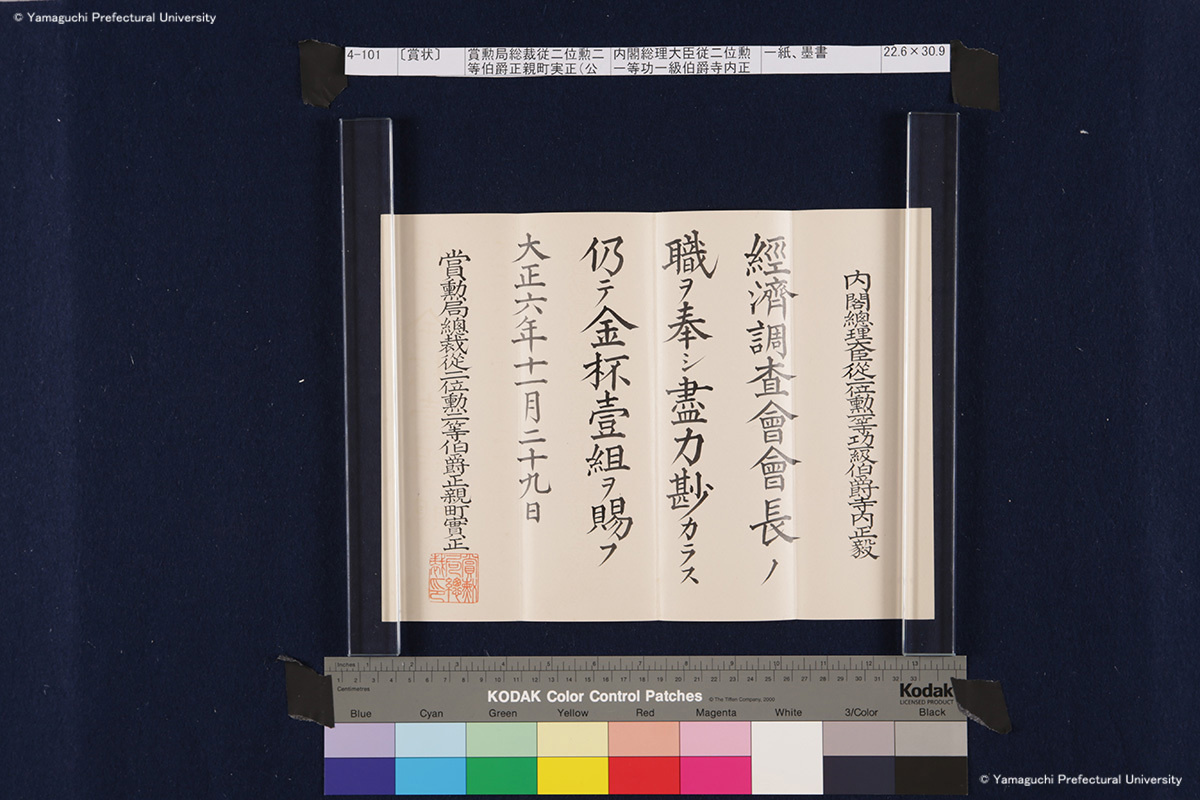 © Yamaguchi Prefectural University
4-101
〔賞状〕
賞勲局総裁従二位勲二
等伯爵正親町実正(公
内閣総理大臣従二位勲
一等功一級伯爵寺内正
一紙、墨書
22.6×30.9
内閣總理大臣從二位勲一等功一級伯爵寺内正毅
經濟調査會會長ノ
職ヲ奉シ盡力尠カラス
仍テ金杯壹組ヲ賜フ
大正六年十一月二十九日
賞勲局總裁從二位勲二等伯爵正親町實正
賞勲
局總
裁印
Inches 1 2 3 4 5 6 7 8 9 10 11 12 13
Centimetres
KODAK Color Control Patches
© The Tiffen Company, 2000
Kodak
LICENSED PRODUCT
Blue Cyan Green Yellow Red Magenta White 3/Color Black
© Yamaguchi Prefectural University